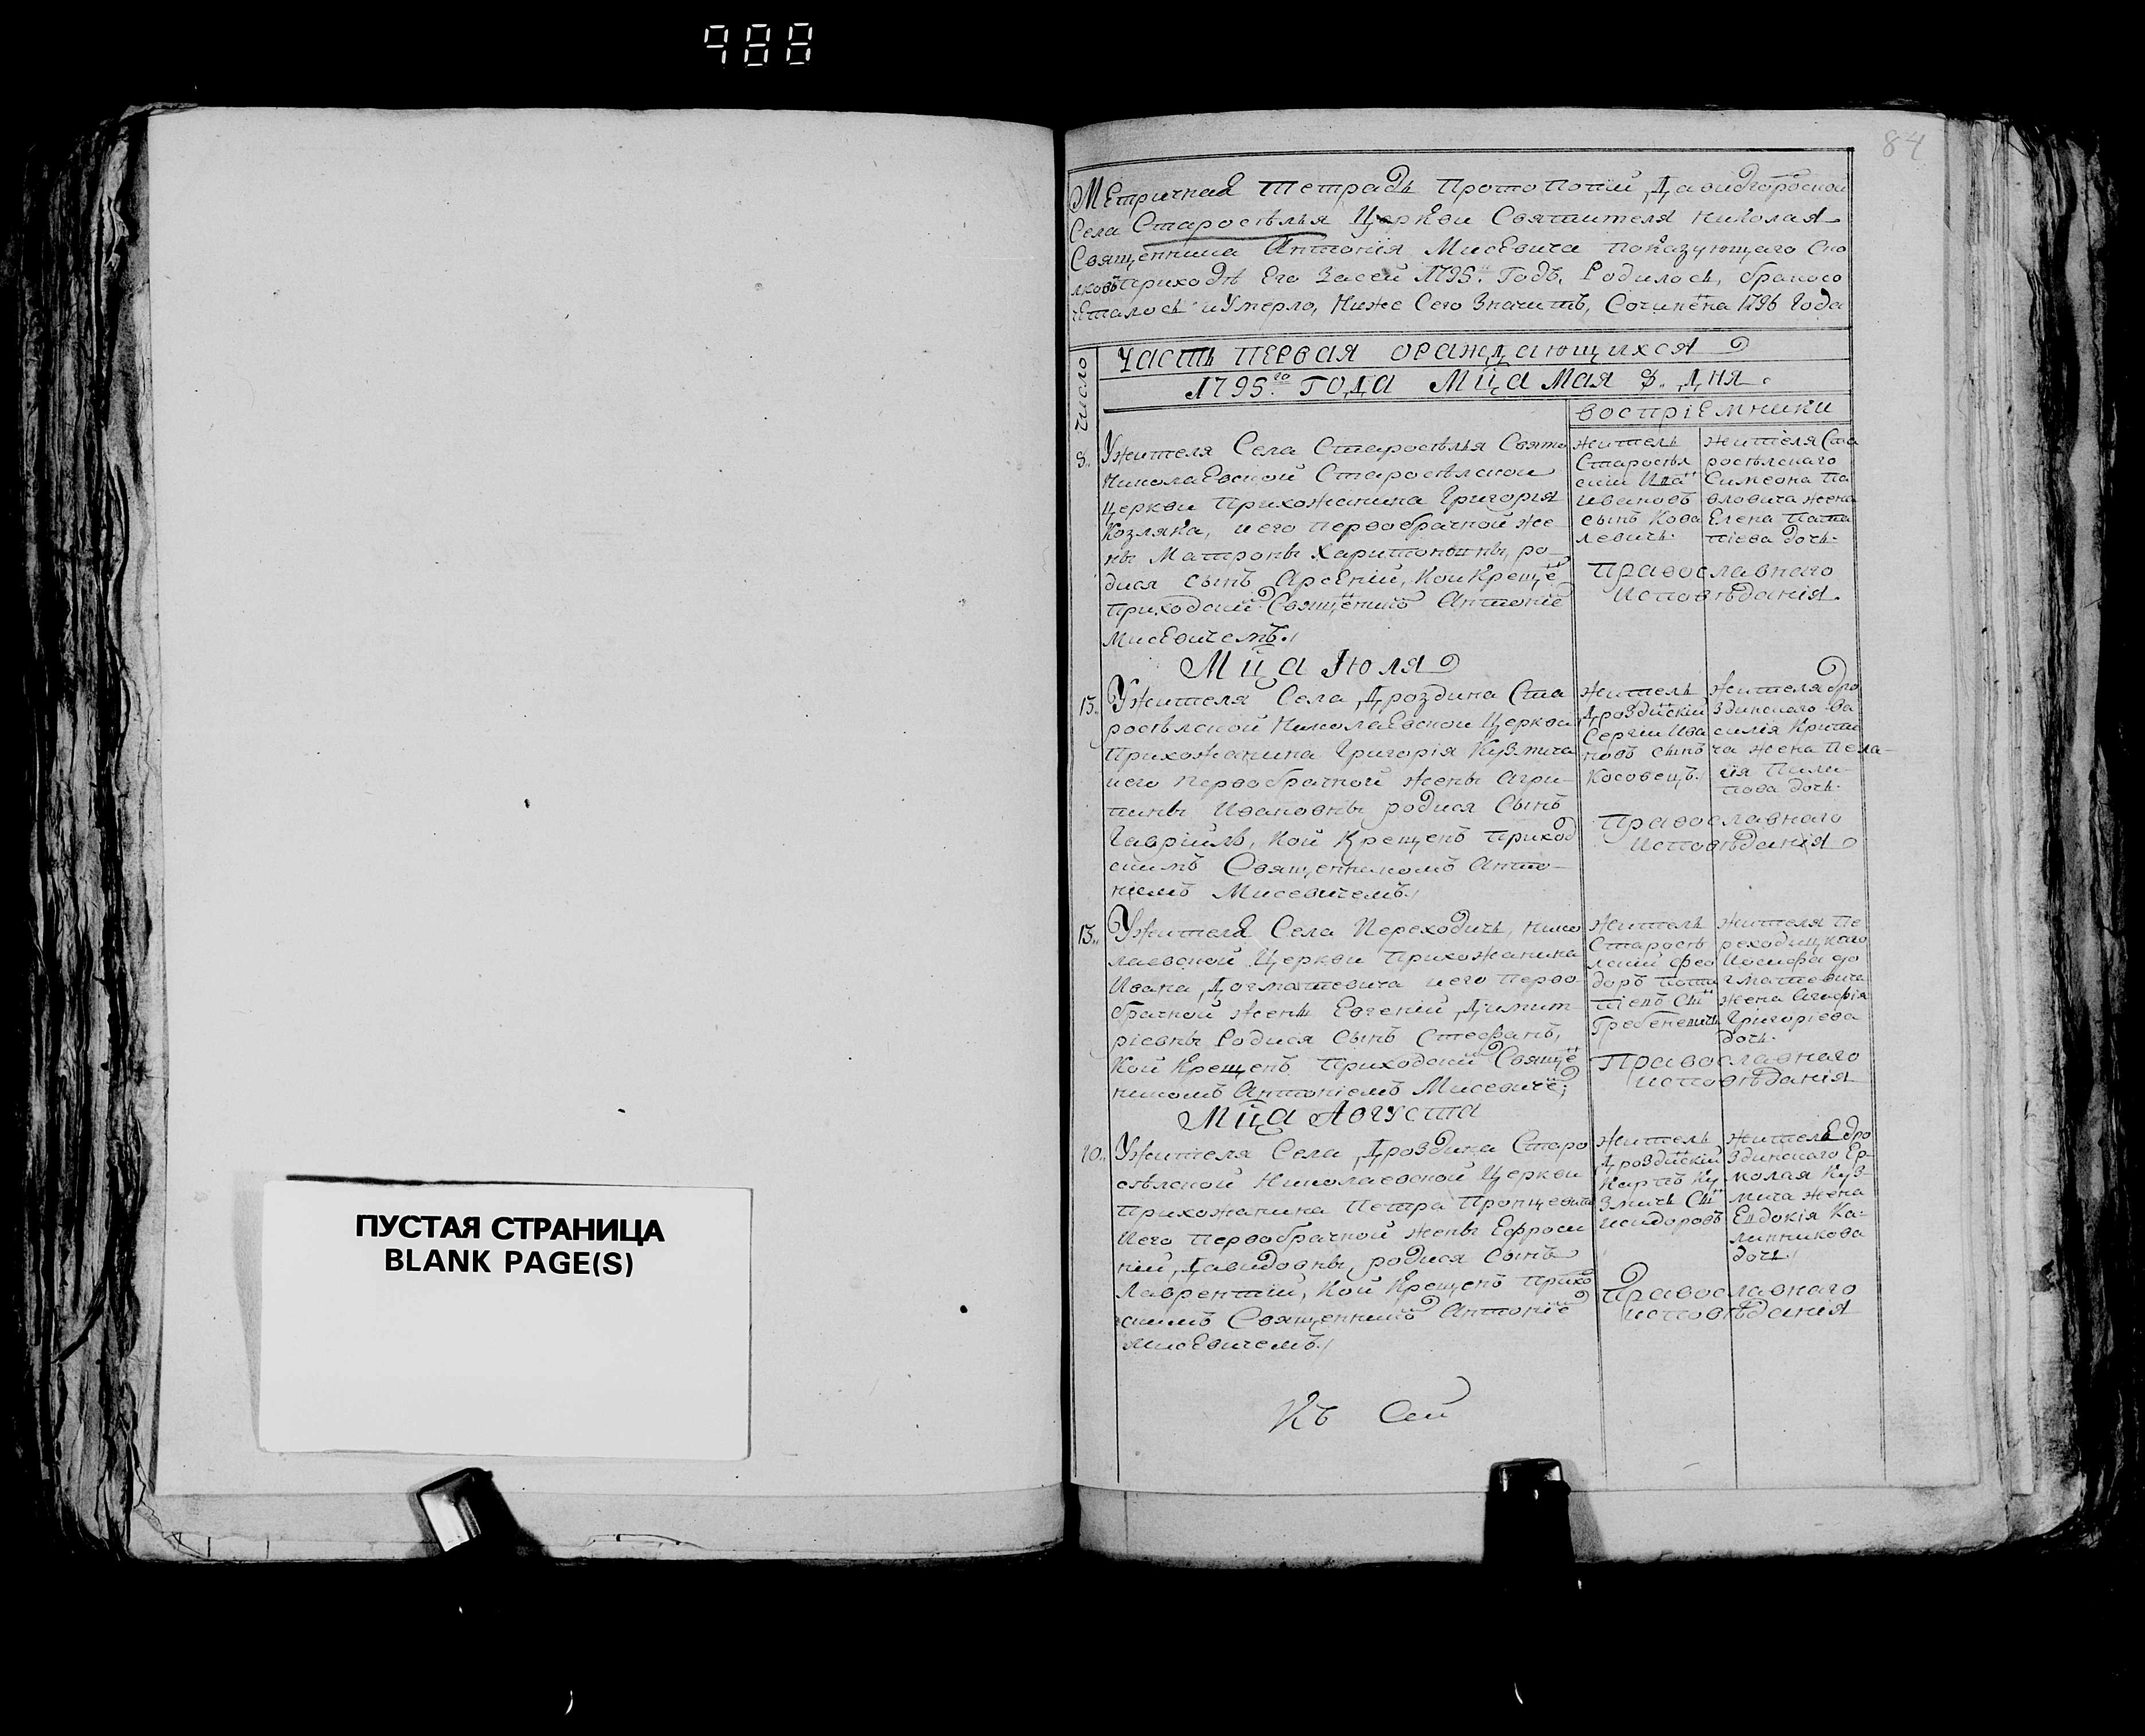 988
84
Метричная тетрадь протопопіи Давидгородской
Села Староселья Церкви Святителя Николая
Священника Антонія Мисевича показующаго Ско
лковъ приходѣ Его Засей 1795. Годъ, Родилось, бракосо
четалось и Умерло, Ниже Сего Значитъ, Сочинена 1796 Года
Число
Часть первая ораждающихся
1795го года Мца Мая 8. дня.
воспріемники
8.
Ужителя Села Староселья Свято
Николаевской Староселской
церкви Прихожанина Григорія
Козляка, иего первобрачной же
ны Матроны Харитоновны, ро
дися сынъ Арсеній, Кои Креще
приходскій Священникъ Антоніе
Мисевичемъ.
житель
Староселя
скій Ива
Ивановъ
сынъ Кова
левичъ.
жителя Ста
роселскаго
Симеона Па
вловича жена
Елена Пота
піева дочь.
Православнаго
исповѣданія
Мца Іюля
13.
Ужителя Села Дроздина Ста
роселской Николаевской Церкви
Прихожанина Григорія Кузмича
иего Первобрачной жены Агри
пины Ивановны родися Сынъ
Гавріилъ, Кой Крещенъ приход
скимъ Священникомъ Анто
ніемъ Мисевичемъ.
житель
Дроздискій
Сергіи Ива
новъ сынъ
Косовецъ.
жителя Дро
здинскаго Ва
силія Крити
ча жена Пела
гія Пили
пова дочь.
Православнаго
исповѣданія
13.
Ужителя Села Переходичъ, Нико
лаевской Церкви Прихожанина
Ивана Догматевича иего перво
брачной жены Евгеніи Димит
ріевны Родися Сынъ Стефанъ,
Кой Крещенъ Приходскій Свяще
никомъ Антоніемъ Мисевиче;
житель
Старосе
лскій Фео
доръ Пота
піевъ Сы
Гребеневичъ
жителя Пе
реходицкаго
Иосифа До
гматевича
жена Агафія
Григоріева
дочь.
Православнаго
исповѣданія
Мца Августа
10.
Ужителя Села Дроздина Старо
селской Николаевской Церкви
Прихожанина Петра Пропцевича
Иего Первобрачной жены Ефроси
ніи Давидовны, родися Сынъ
Лаврентій, Кой Крещенъ прихо
скимъ Священникъ Антоніе
Мисевичемъ.
житель
Дроздискій
Карпъ Ку
змичъ Сы
Исидоровъ
жителя Дро
здинскаго Ер
молая Куз
мича жена
Евдокія Ка
линникова
дочь.
Православнаго
исповѣданія
Къ Сей
ПУСТАЯ СТРАНИЦА
BLANK PAGE(S)